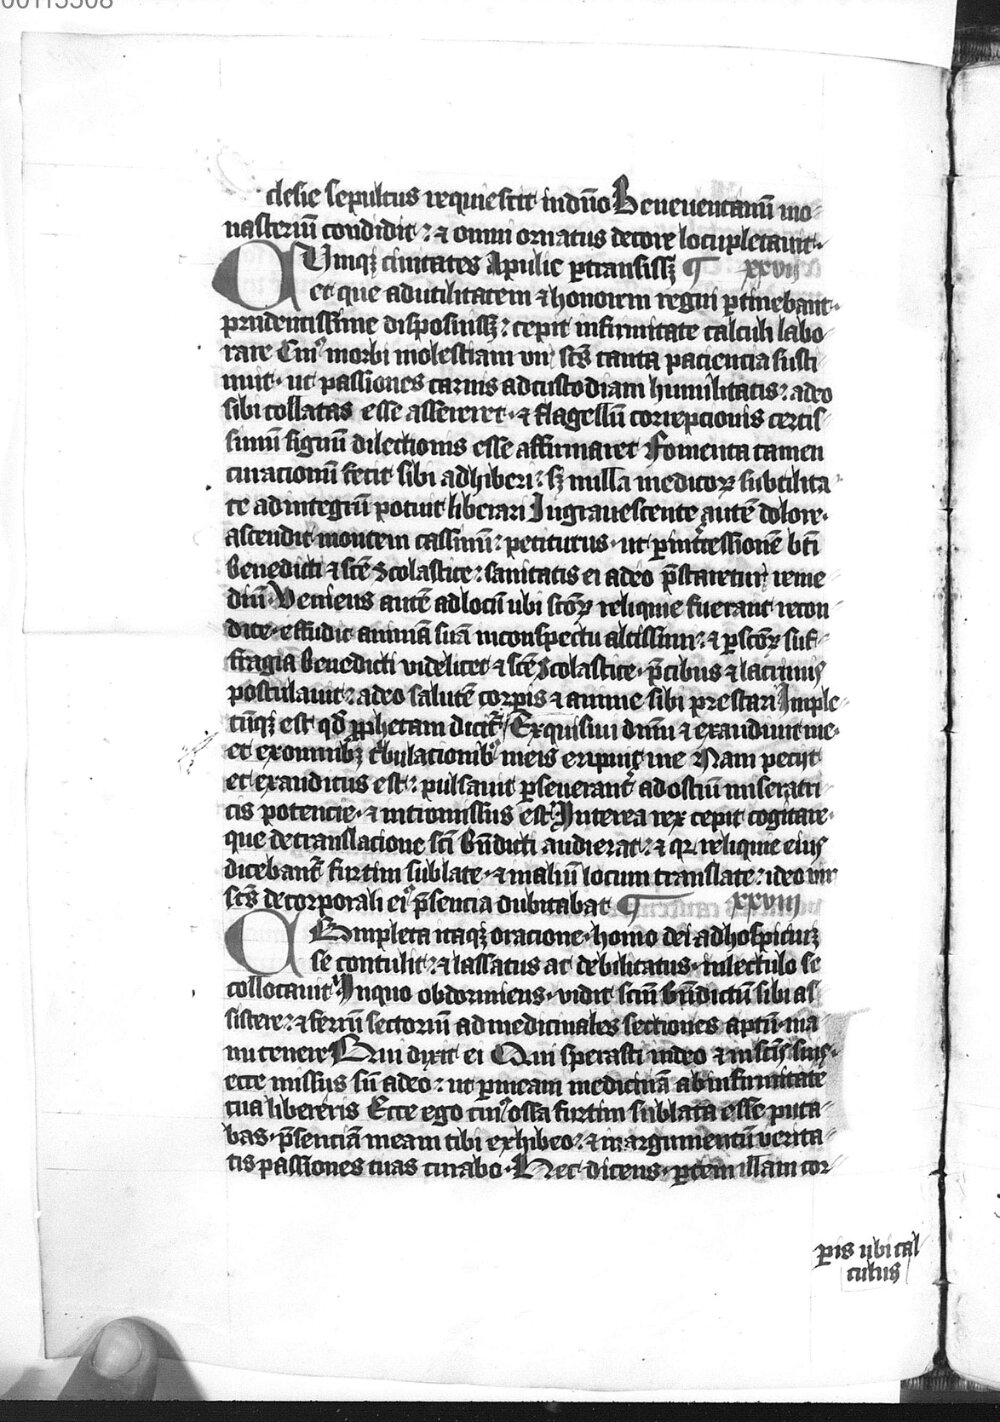 00113308
clesie sepultus requiescit in dūo Beneventanū mo-
nasteriū condidit: ⁊ omni ornatus decore locupletavit.
CUmqꝫ civitates Apulie ꝑtransissꝫ ¶ xxvij
et que ad utilitatem ⁊ honorem regni ꝑtinebant.
prudentissime disposuissꝫ: cepit infirmitate calculi labo-
rare Cuiꝰ morbi molestiam vir scs̄ tanta paciencia susti
nuit. ut passiones carnis ad custodiam humilitatis: a deo
sibi collatas esse assereret. ⁊ flagellū correpcionis certis-
simū signū dilectionis esse affirmaret Fomenta tamen
curacionū fecit sibi adhiberi: sꝫ nulla medicoꝝ subtilita-
te ad integrū potuit liberari Ingravescente autē dolore.
ascendit montem cassinū: petiturus. ut ꝑ int̄cessionē bt̄i
Benedicti ⁊ scē Scolastice: sanitatis ei a deo p̄staretur reme
diū. Veniens autē ad locū ubi sctōꝝ reliquie fuerant recon-
dite. effudit animā suā in conspectu altissimi: ⁊ ꝑ sctōꝝ suf-
fragia Benedicti videlicet ⁊ scē Scolastice. p̄cibus ⁊ lacrimis
postulavit: a deo salutē corꝑis ⁊ anime sibi prestari Imple-
tūqꝫ est qd̄ ꝓphetam dicit̄ Exquisivi dnm̄ ⁊ exaudivit me.
et ex omnibꝫ t̄bulacionibꝰ meis eripuit me Nam peciit
et exauditus est: pulsavit ꝑseverant̄ ad ostiū miseratri
cis potencie. ⁊ intromissus est. Interea rex cepit cogitare.
que de translacione scī Bn̄dicti audierat: ⁊ qr̄ reliquie eius
dicebant̄ furtim sublate. ⁊ in aliū locum translate: ideo vir
scs̄ de corporali eiꝰ p̄sencia dubitabat ¶ xxviij
COmpleta itaqꝫ oracione. homo dei ad hospiciū
se contulit: ⁊ lassatus ac debilitatus. in lectulo se
collocavit In quo obdormiens. vidit scm̄ Bn̄dictū sibi as
sistere: ⁊ ferrū sectoriū ad medicinales sectiones aptū. ma
nu tenere Qui dixit ei Qui sperasti in deo ⁊ in scīs suis.
ecce missus sū a deo: ut ꝑ meam medicinā ab infirmitate
tua libereris Ecce ego cuiꝰ ossa furtim sublata esse puta-
bas. p̄senciā meam tibi exhibeo: ⁊ in argumentū verita-
tis passiones tuas curabo. Hec dicens. ꝑtem illam cor-
ꝑis ubi cal
culus